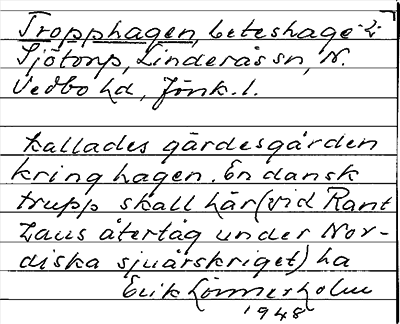 Tropphagen, beteshage i
Sjötorp, Linderås sn, N.
Vedbo hd, Jönk. l.
kallades gärdesgården
kring hagen. En dansk
trupp skall här (vid Rant
zaus återtåg under Nor-
diska sjuårskriget) ha
Erik Lönnerholm
1948